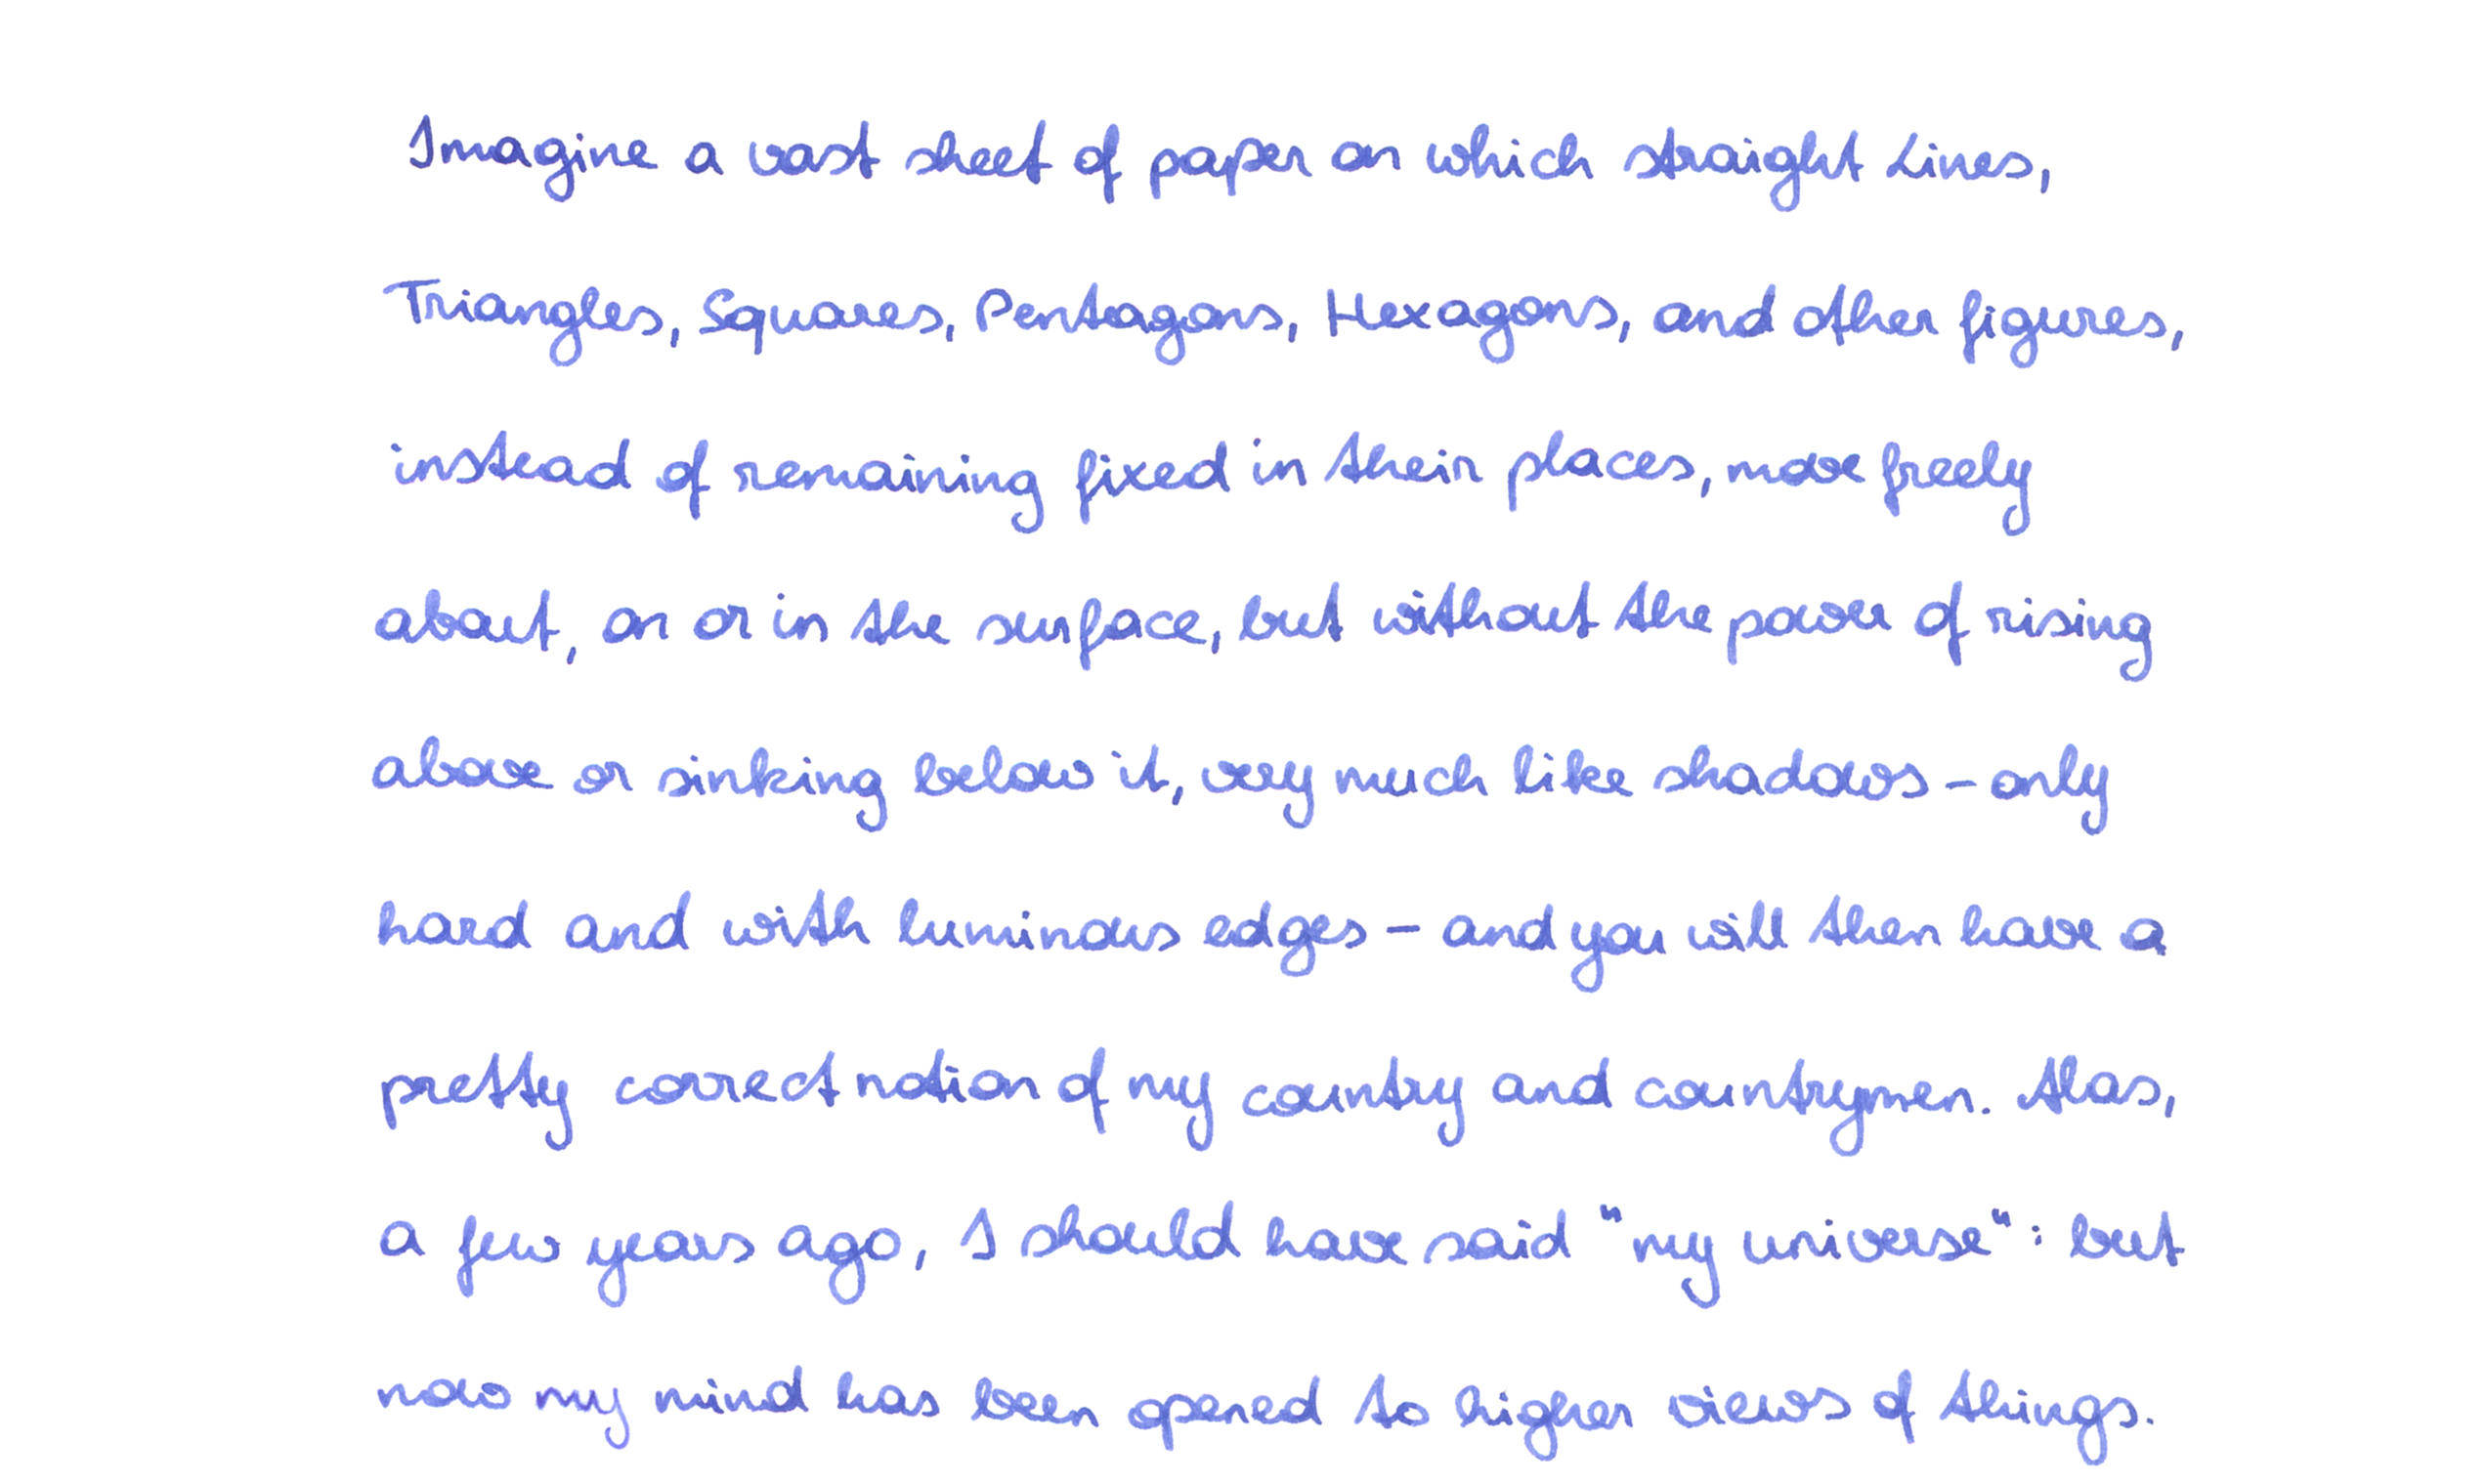 Imagine a vast sheet of paper on which straight Lines,
Triangles, Squares, Pentagons, Hexagons, and other figures,
instead of remaining fixed in their places, move freely
about, on or in the surface, but without the power of rising
above or sinking below it, very much like shadows - only
hard and with luminous edges - and you will then have a
pretty correct notion of my country and countrymen. Alas,
a few years ago, I should have said "my universe": but
now my mind has been opened to higher views of things.